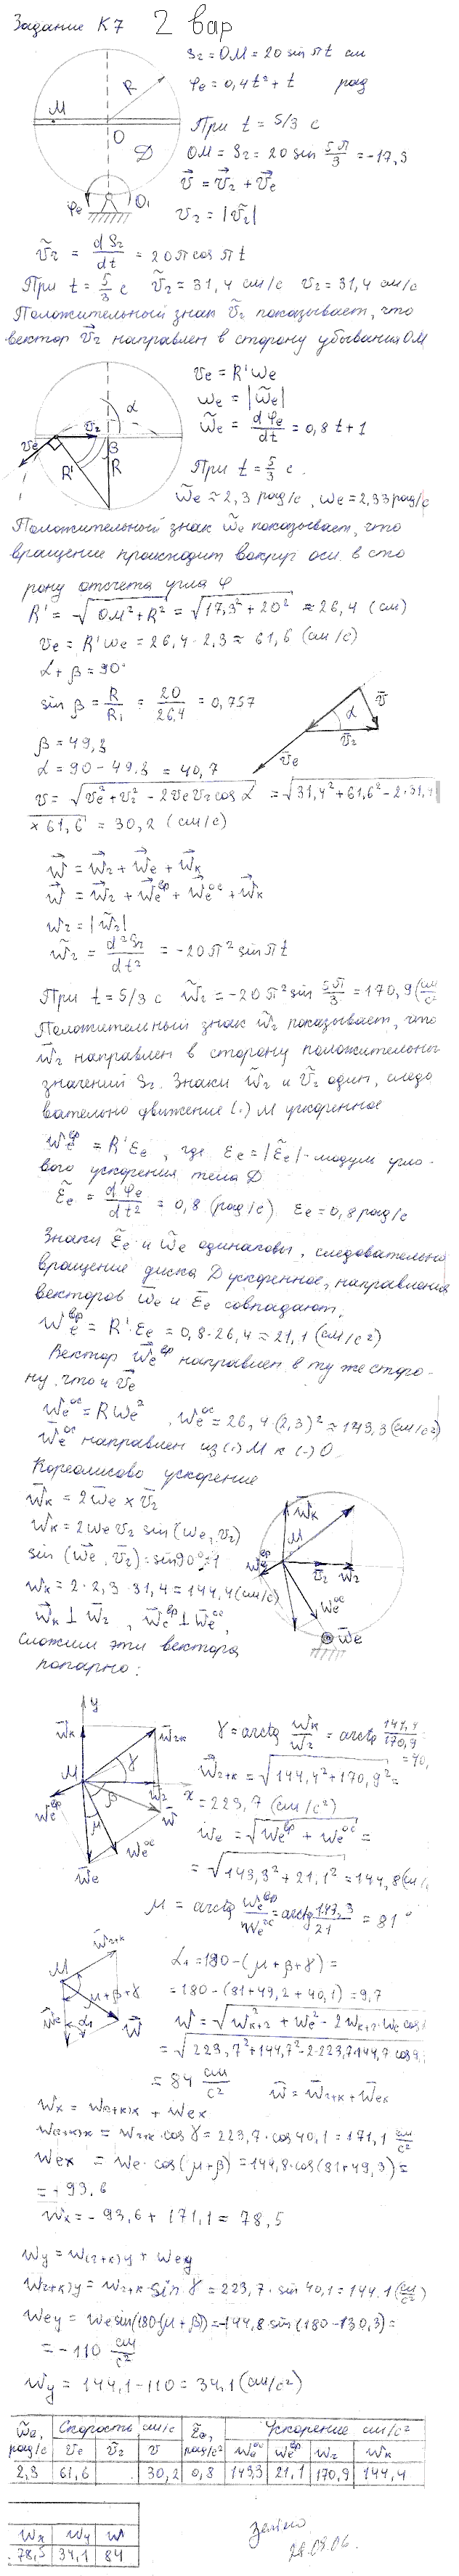 Задание К7 2 вар
S₂ = OM = 20 sin πt см
φe = 0,4t² + t рад
R
М
О
Д
φe
O₁
При t = 5/3 с
OM = S₂ = 20 sin 5π/3 = -17,3
v̄ = v̄₂ + v̄e
v₂ = |ṽ₂|
ṽ₂ = dS₂/dt = 20π cos πt
При t = 5/3 с ṽ₂ = 31,4 см/с v₂ = 31,4 см/с
Положительный знак ṽ₂ показывает, что
вектор v̄₂ направлен в сторону убывания ОМ
ve = R'ωe
ωe = |ω̃e|
ω̃e = dφe/dt = 0,8t + 1
При t = 5/3 с
ω̃e ≈ 2,3 рад/с, ωe = 2,33 рад/с
ve
v₂
α
β
R'
R
Положительный знак ω̃e показывает, что
вращение происходит вокруг оси в сто
рону отсчета угла φ
R' = √OM² + R² = √17,3² + 20² ≈ 26,4 (см)
ve = R'ωe = 26,4 · 2,3 ≈ 61,6 (см/с)
α + β = 90°
sin β = R/R₁ = 20/26,4 = 0,757
β = 49,3
α = 90 - 49.3 = 40,7
v̄
α
v̄₂
v̄e
v = √ve² + v₂² - 2vev₂ cos α = √31,4² + 61,6² - 2·31,4
× 61,6 = 30,2 (см/с)
w̄ = w̄₂ + w̄e + w̄к
w̄ = w̄₂ + w̄eᵇᵖ + w̄eᵒᶜ + w̄к
w₂ = |w̃₂|
w̃₂ = d²S₂/dt² = -20π² sin πt
При t = 5/3 с w̃₂ = -20π² sin 5π/3 = 170,9 (см/с²
Положительный знак w̃₂ показывает, что
w̄₂ направлен в сторону положительны
значений S₂. Знаки w̃₂ и ṽ₂ один, следо
вательно движение (·) М ускоренное
weᵇᵖ = R'εe, где εe = |ε̃e| - модуль угло-
вого ускорения тела Д
ε̃e = dφe/dt² = 0,8 (рад/с) εe = 0,8 рад/с
Знаки ε̃e и ω̃e одинаковы, следовательно
вращение диска Д ускоренное, направления
векторов ω̄e и ε̄e совпадают,
weᵇᵖ = R'·εe = 0,8·26,4 = 21,1 (см/с²)
Вектор w̄eᵇᵖ направлен в ту же сторо-
ну, что и v̄e
weᵒᶜ = Rωe², weᵒᶜ = 26,4·(2,3)² ≈ 143,3 (см/с²)
w̄eᵒᶜ направлен из (·) М к (·) О
Кореолисово ускорение
w̄к = 2ω̄e × v̄₂
wк = 2ωe v₂ sin(ωe, v₂)
sin(ω̄e, v̄₂) = sin90° = 1
wк = 2·2,3·31,4 = 144,4 (см/с)
w̄к ⊥ w̄₂, w̄eᵇᵖ ⊥ w̄eᵒᶜ,
сложим эти вектора
попарно:
w̄к
М
weᵇᵖ
v̄₂ w̄₂
weᵒᶜ
ω̄e
y
w̄к
w̄₂к
М
γ
x
β
w̄₂
w̄
μ
weᵇᵖ
weᵒᶜ
w̄e
γ = arctg wк/w₂ = arctg 144,4/170,9 = 40,
w̄₂₊к = √144,4² + 170,9² =
= 223,7 (см/с²)
we = √weᵇᵖ + weᵒᶜ =
= √143,3² + 21,1² = 144,8 (см/
μ = arctg weᵇᵖ/weᵒᶜ = arctg 143,3/21 = 81°
М
w̄₂₊к
μ+β+γ
w̄e
α₁
w̄
α₁ = 180 - (μ + β + γ) =
= 180 - (81 + 49,2 + 40,1) = 9,7
w = √w²к₊₂ + we² - 2wк₊₂·we cos
= √223,7² + 144,7² - 2·223,7·144,7 cos9,
= 84 см/с² w̄ = w̄₂₊к + w̄eк
wx = w(₂₊к)x + wex
w(₂₊к)x = w₂₊к · cos γ = 223,7·cos 40,1 = 171,1 см/с²
wex = we·cos(μ+β) = 144,8·cos(81+49,3) =
= +93,6
wx = -93,6 + 171,1 = 78,5
wy = w(₂₊к)y + wey
w(₂₊к)y = w₂₊к · sin γ = 223,7·sin 40,1 = 144,1 (см/с²)
wey = we sin(180-(μ+β)) = -144,8 sin(180-130,3) =
= -110 см/с²
wy = 144,1 - 110 = 34,1 (см/с²)
ω̃e, рад/с Скорость см/с ε̃e, рад/с² Ускорение см/с²
ve ṽ₂ v weᵒᶜ weᵇᵖ w₂ wк
2,3 61,6 30,2 0,8 143,3 21,1 170,9 144,4
wx wy w
78,5 34,1 84